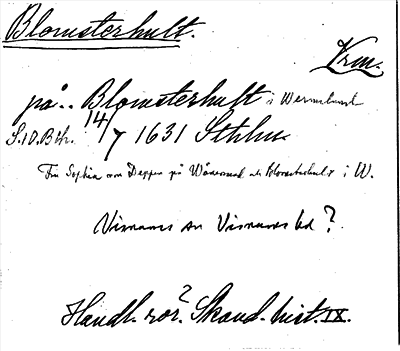 Blomsterhult.
Vrm.
på.. Blomsterhult i Wermland
S.i.D. Bth. 14/7 1631 Sthlm.
Fru Sophia von Deppen på Wåxsnäs och Blomsterhult i W.
Visnums en Visnums hd?
Handl. rör.? Skand. hist. IX.